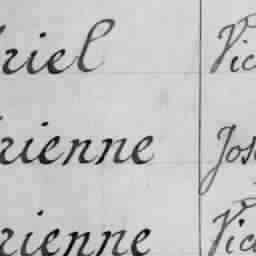 riel Vic
rienne Jos
rienne Vic